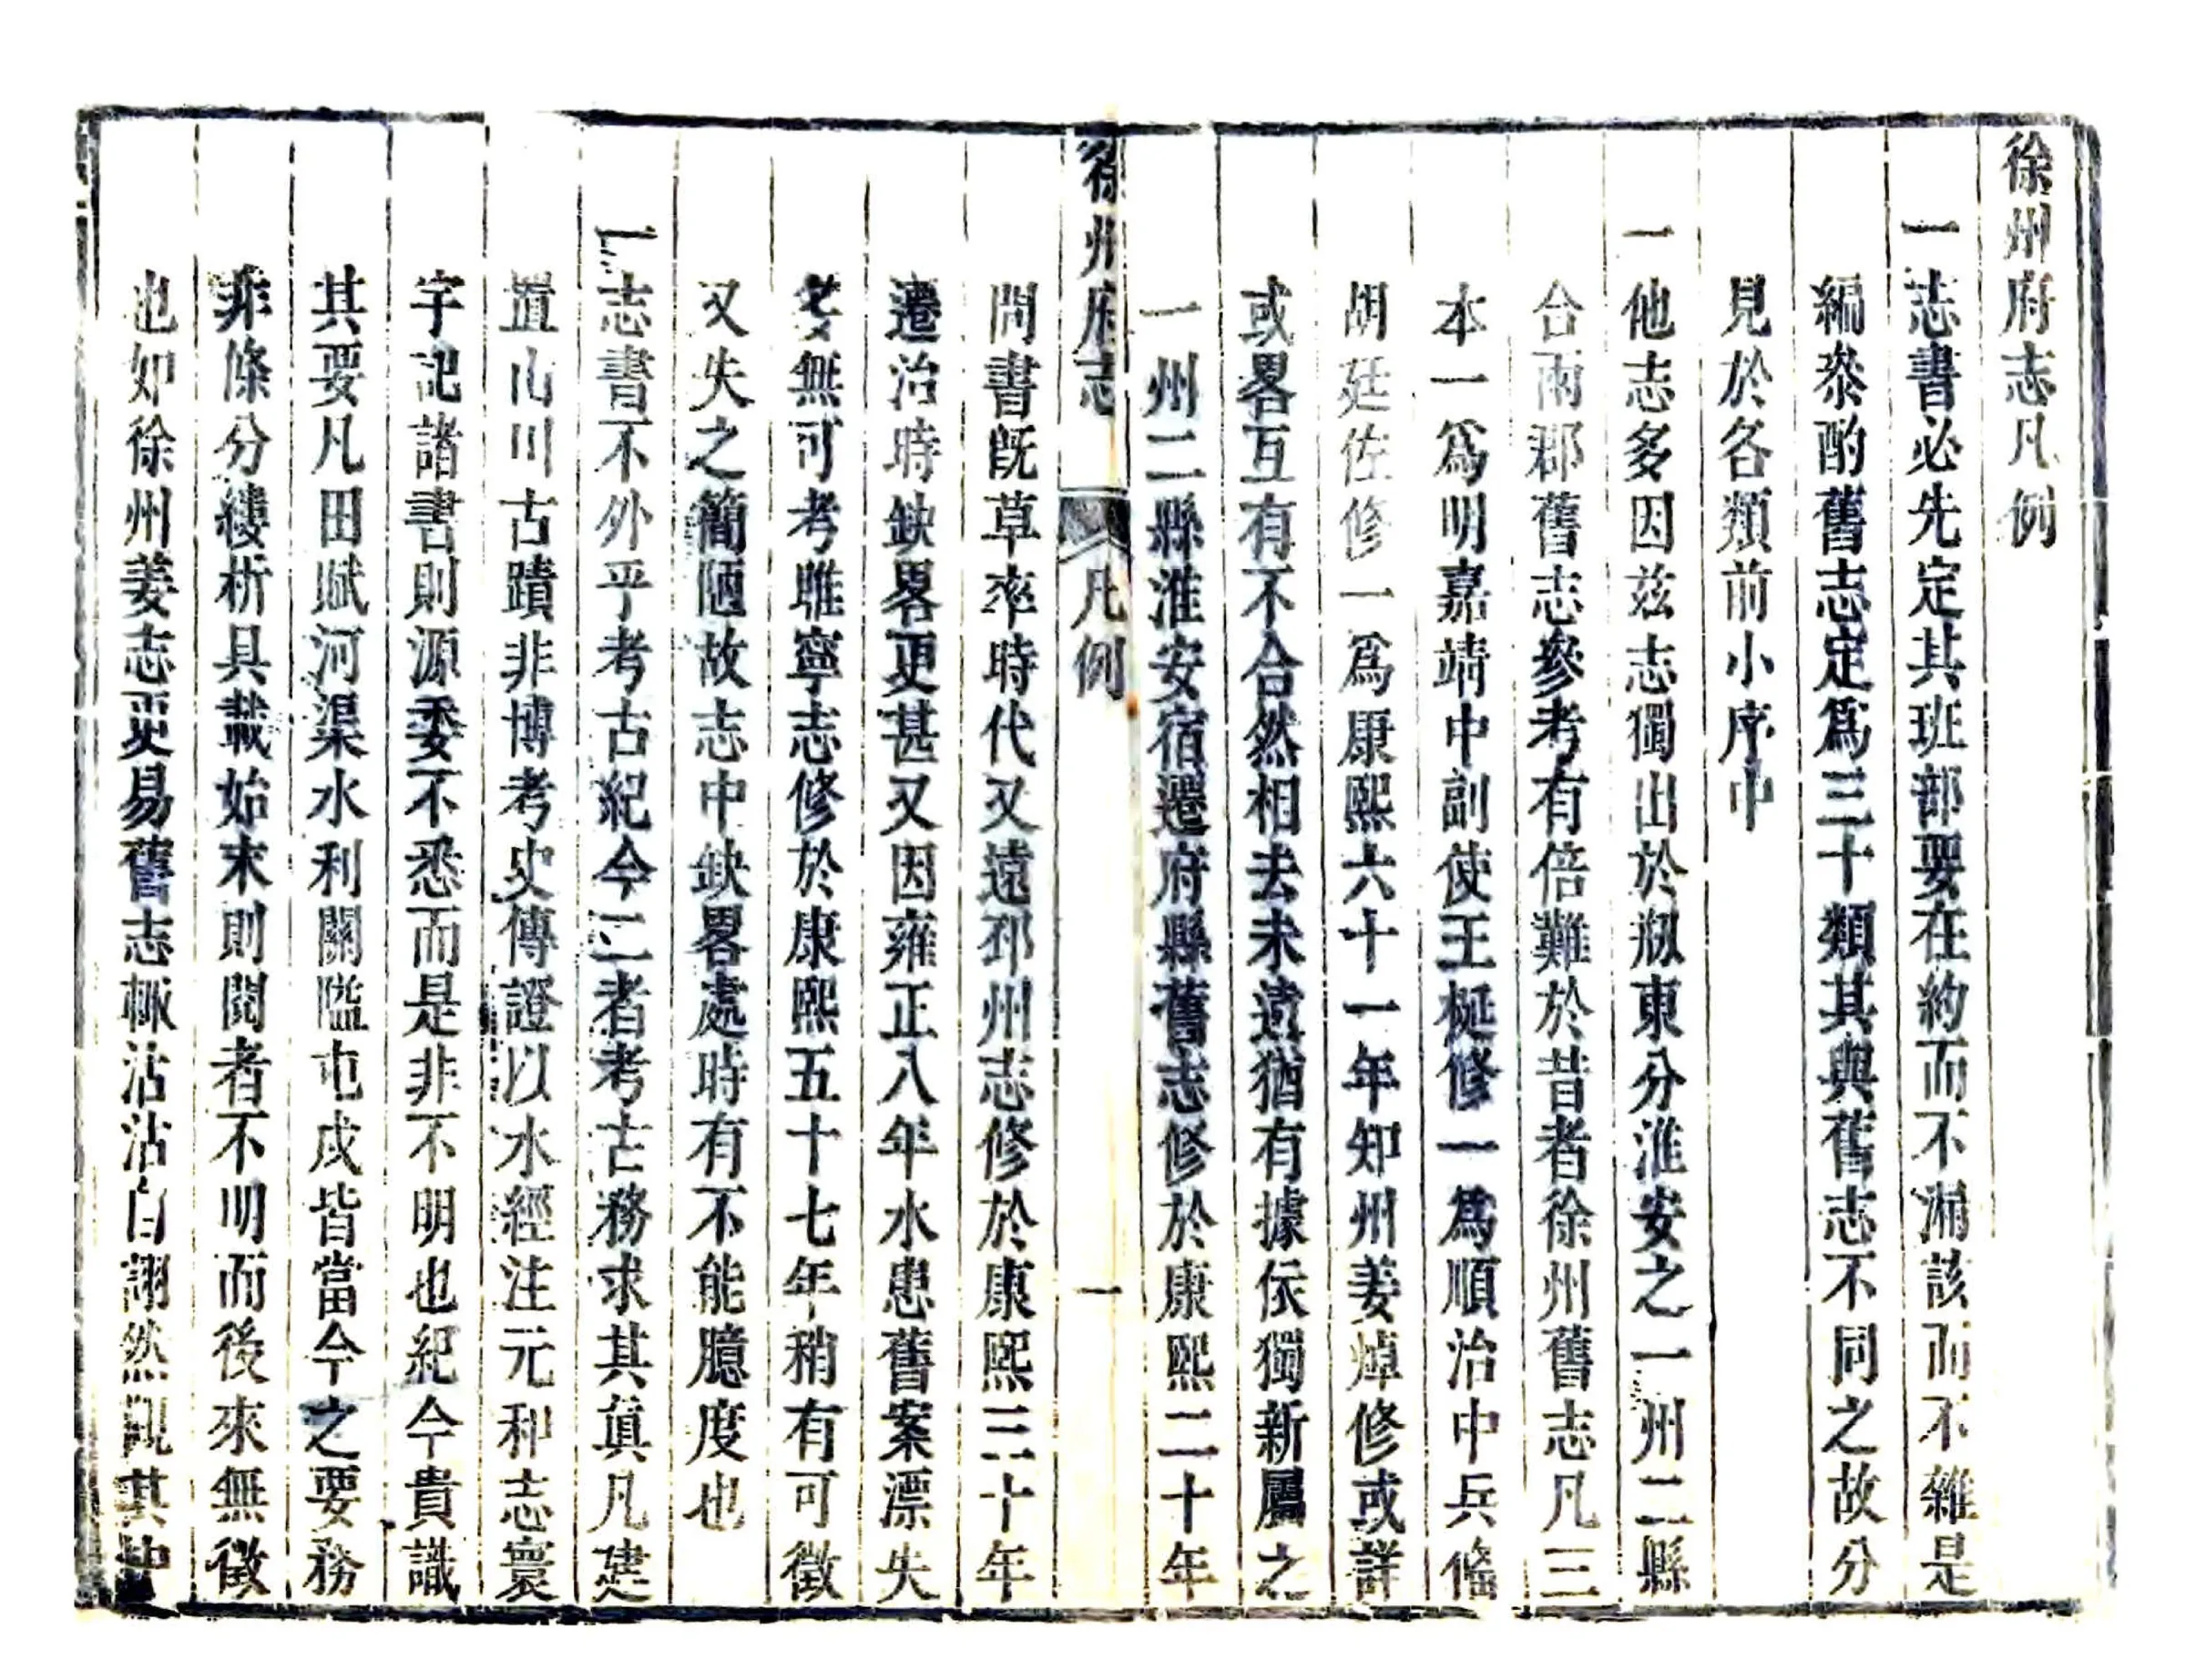 徐州府志凡例
一志書必先定其班部要在約而不漏該而不雜是
編叅酌舊志定爲三十類其與舊志不同之故分
見於各類前小序中
一他志多因兹志獨出於剏東分淮安之一州二縣
合兩郡舊志參考有倍難於昔者徐州舊志凡三
本一爲明嘉靖中副使王梴修一爲順治中兵備
胡廷佐修一爲康熙六十一年知州姜焯修或詳
或畧互有不合然相去未遠猶有據依獨新屬之
一州二縣淮安宿遷府縣舊志修於康熙二十年
徐州府志 凡例 一
間書既草率時代又遠邳州志修於康熙三十年
遷治時缺畧更甚又因雍正八年水患舊案漂失
芟無可考睢寧志修於康熙五十七年稍有可徵
又失之簡陋故志中缺畧處時有不能臆度也
一志書不外乎考古紀今二者考古務求其眞凡建
置山川古蹟非博考史傳證以水經注元和志寰
宇記諸書則源委不悉而是非不明也紀今貴識
其要凡田賦河渠水利關隘屯戍皆當今之要務
非條分縷析具載始末則閱者不明而後來無徵
也如徐州姜志更易舊志輒沾沾自詡然觀其中